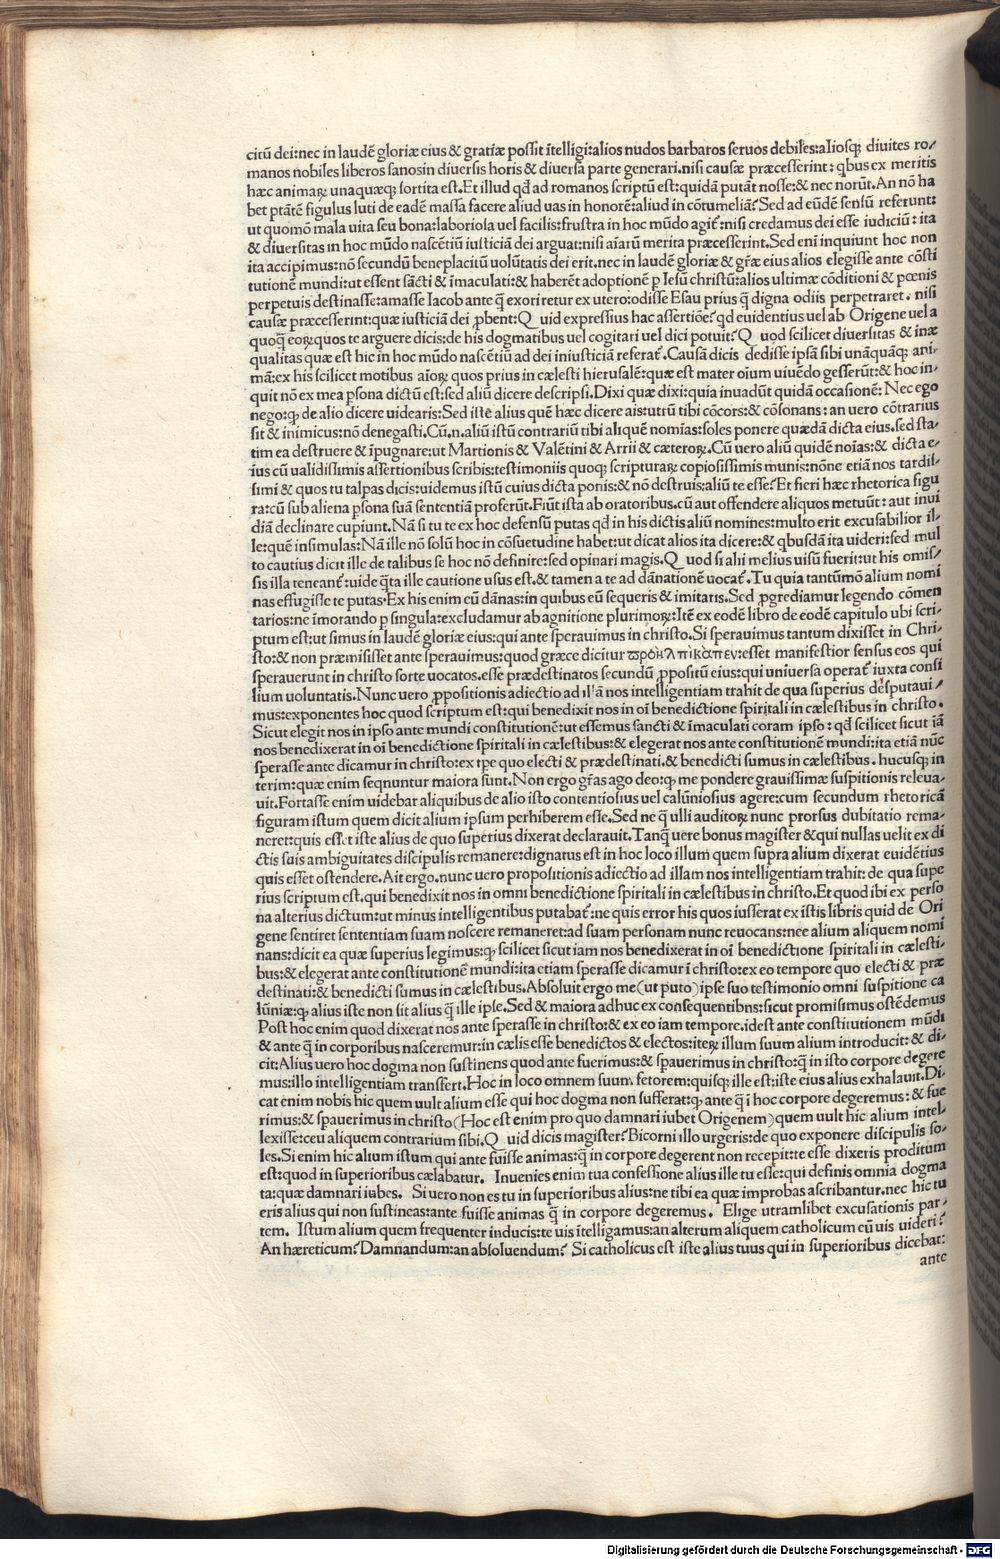 citū dei:nec in laudē gloriæ eius & gratiæ possit ītelligi:alios nudos barbaros seruos debiles:aliosqꝫ diuites ro/
manos nobiles liberos sanosin diuersis horis & diuersa parte generari.nisi causæ præcesserint: qbus ex meritis
hæc animaꝝ unaquæqꝫ sortita est.Et illud qd̄ ad romanos scriptū est:quidā putāt nosse:& nec norūt.An nō ha
bet ptātē figulus luti de eadē massa facere aliud uas in honorē:aliud in cōtumeliā?Sed ad eūdē sensū referunt:
ut quomō mala uita seu bona:laboriosa uel facilis:frustra in hoc mūdo agit̄:nisi credamus dei esse iudiciū: ita
& diuersitas in hoc mūdo nascētiū iusticiā dei arguat:nisi aīarū merita præcesserint.Sed eni inquiunt hoc non
ita accipimus:nō secundū beneplacitū uolūtatis dei erit.nec in laudē gloriæ & gr̄æ eius alios elegisse ante cōsti
tutionē mundi:ut essent sācti & īmaculati:& haberēt adoptionē p Iesū christū:alios ultimæ cōditioni & pœnis
perpetuis destinasse:amasse Iacob ante q̄ exoriretur ex utero:odisse Esau prius q̄ digna odiis perpetraret. nisi
causæ præcesserint:quæ iusticiā dei ꝓbent:Q uid expressius hac assertiōe?qd euidentius uel ab Origene uel a
quoq̄ eoꝝ:quos te arguere dicis:de his dogmatibus uel cogitari uel dici potuit?Q uod scilicet diuersitas & inæ
qualitas quæ est hic in hoc mūdo nascētiū ad dei iniusticiā referat̄.Causā dicis dedisse ipsā sibi unāquāqꝫ ani/
mā:ex his scilicet motibus aīoꝝ quos prius in cælesti hierusalē:quæ est mater oīum uiuēdo gesserūt:& hoc in/
quit nō ex mea psona dictū est:sed aliū dicere descripsi.Dixi quæ dixi:quia inuadūt quidā occasionē: Nec ego
nego:ꝙ de alio dicere uidearis:Sed istē alius quē hæc dicere ais:utrū tibi cōcors:& cōsonans: an uero cōtrarius
sit & inimicus:nō denegasti.Cū.n.aliū istū contrariū tibi aliquē nomīas:soles ponere quædā dicta eius.sed sta/
tim ea destruere & īpugnare:ut Martionis & Valētini & Arrii & cæteroꝝ.Cū uero aliū quidē noīas:& dicta e/
ius cū ualidissimis assertionibus scribis:testimoniis quoqꝫ scripturaꝝ copiosissimis munis:nōne etiā nos tardis/
simi & quos tu talpas dicis:uidemus istū cuius dicta ponis:& nō destruis:aliū te esse?Et fieri hæc rhetorica figu
ra:cū sub aliena psona suā sententiā proferūt.Fiūt ista ab oratoribus.cū aut offendere aliquos metuūt: aut inui
diā declinare cupiunt.Nā si tu te ex hoc defensū putas qd in his dictis aliū nomines:multo erit excusabilior il/
le:quē insimulas:Nā ille nō solū hoc in cōsuetudine habet:ut dicat alios ita dicere:& qbusdā ita uideri:sed mul
to cautius dicit ille de talibus se hoc nō definire:sed opinari magis.Q uod si alii melius uisū fuerit:ut his omis/
sis illa teneant̄:uide q̄ta ille cautione usus est.& tamen a te ad dānationē uocat̄.Tu quia tantūmō alium nomi
nas effugisse te putas.Ex his enim cū dānas:in quibus eū sequeris & imitaris.Sed ꝓgrediamur legendo cōmen
tarios:ne īmorando p singula:excludamur ab agnitione plurimoꝝ:Itē ex eodē libro de eodē capitulo ubi scri/
ptum est:ut simus in laudē gloriæ eius:qui ante sperauimus in christo.Si sperauimus tantum dixisset in Chri/
sto:& non præmisisset ante sperauimus:quod græce dicitur προηλπικαπεν:esset manifestior sensus eos qui
sperauerunt in christo sorte uocatos.esse prædestinatos secundū ꝓpositū eius:qui uniuersa operat̄ iuxta consi
lium uoluntatis.Nunc uero ꝓpositionis adiectio ad illā nos intelligentiam trahit de qua superius desputaui/
mus:exponentes hoc quod scriptum est:qui benedixit nos in oī benedictione spiritali in cælestibus in christo.
Sicut elegit nos in ipso ante mundi constitutionē:ut essemus sancti & īmaculati coram ipso: qd scilicet sicut iā
nos benedixerat in oī benedictione spiritali in cælestibus:& elegerat nos ante constitutionē mundi:ita etiā nūc
sperasse ante dicamur in christo:ex tpe quo electi & prædestinati.& benedicti sumus in cælestibus. hucusqꝫ in
terim:quæ enim seqnuntur maiora sunt.Non ergo gr̄as ago deo:ꝙ me pondere grauissimæ suspitionis releua/
uit.Fortasse enim uidebar aliquibus de alio isto contentiosius uel calūniosius agere:cum secundum rhetoricā
figuram istum quem dicit alium ipsum perhiberem esse.Sed ne q̄ ulli auditoꝝ nunc prorsus dubitatio rema/
neret:quis esset iste alius de quo superius dixerat declarauit.Tanq̄ uere bonus magister & qui nullas uelit ex di
ctis suis ambiguitates discipulis remanere:dignatus est in hoc loco illum quem supra alium dixerat euidētius
quis esset ostendere.Ait ergo.nunc uero propositionis adiectio ad illam nos intelligentiam trahit: de qua supe
rius scriptum est.qui benedixit nos in omni benedictione spiritali in cælestibus in christo.Et quod ibi ex perso
na alterius dictum:ut minus intelligentibus putabat̄:ne quis error his quos iusserat ex istis libris quid de Ori
gene sentiret sententiam suam noscere remaneret:ad suam personam nunc reuocans:nec alium aliquem nomi
nans:dicit ea quæ superius legimus:ꝙ scilicet sicut iam nos benedixerat in oī benedictione spiritali in cælesti/
bus:& elegerat ante constitutionē mundi:ita etiam sperasse dicamur ī christo:ex eo tempore quo electi & præ
destinati:& benedicti sumus in cælestibus.Absoluit ergo me(ut puto)ipse suo testimonio omni suspitione ca
lūniæ:ꝙ alius iste non sit alius q̄ ille ipse.Sed & maiora adhuc ex consequentibns:sicut promisimus ostēdemus
Post hoc enim quod dixerat nos ante sperasse in christo:& ex eo iam tempore.idest ante constitutionem mūdi
& ante q̄ in corporibus nasceremur:in cælis esse benedictos & electos:iteꝝ illum suum alium introducit: & di/
cit:Alius uero hoc dogma non sustinens quod ante fuerimus:& spauerimus in christo:q̄ in isto corpore degere
mus:illo intelligentiam transfert.Hoc in loco omnem suum fetorem:quisqꝫ ille est:iste eius alius exhalauit.Di/
cat enim nobis hic quem uult alium esse qui hoc dogma non sufferat:ꝙ ante q̄ ī hoc corpore degeremus: & fue
rimus:& spauerimus in christo(Hoc est enim pro quo damnari iubet Origenem)quem uult hic alium intel/
lexisse:ceu aliquem contrarium sibi.Q uid dicis magister?Bicorni illo urgeris:de quo exponere discipulis so/
les.Si enim hic alium istum qui ante fuisse animas:q̄ in corpore degerent non recepit:te esse dixeris proditum
est:quod in superioribus cælabatur. Inuenies enim tua confessione alius ille tu esse:qui definis omnia dogma
ta:quæ damnari iubes. Si uero non es tu in superioribus alius:ne tibi ea quæ improbas ascribantur.nec hic tu
eris alius qui non sustineas:ante fuisse animas q̄ in corpore degeremus. Elige utramlibet excusationis par/
tem. Istum alium quem frequenter inducis:te uis ītelligamus:an alterum aliquem catholicum cū uis uideri?
An hæreticum?Damnandum:an absoluendum? Si catholicus est iste alius tuus qui in superioribus dicebat:
ante
Digitalisierung gefördert durch die Deutsche Forschungsgemeinschaft - DFG